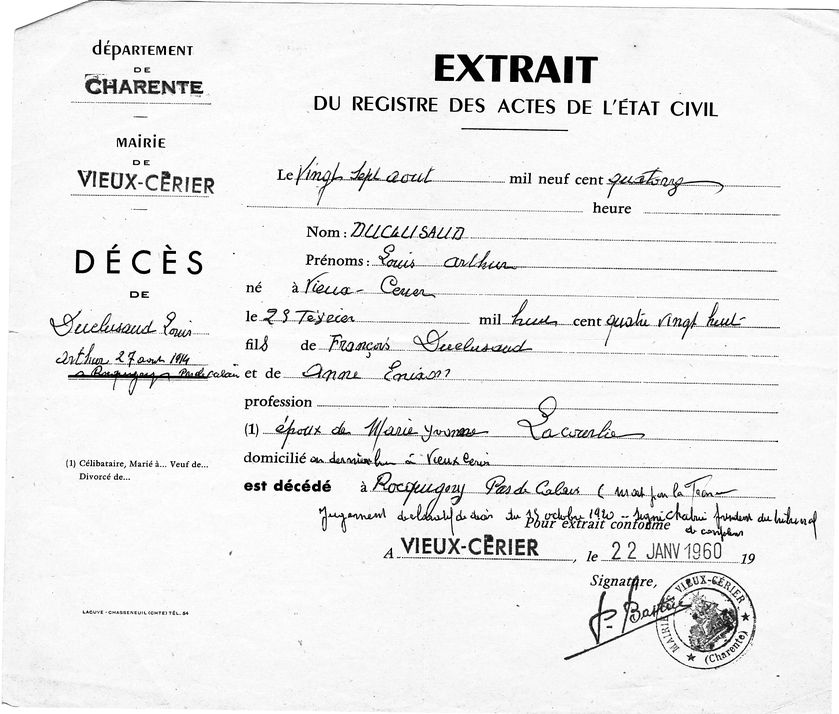 département
DE
CHARENTE
MAIRIE
DE
VIEUX-CÉRIER
DÉCÈS
DE
Duclusaud Louis
Arthur 27 aout 1914
a Rocquigny Pas de Calais
(1) Célibataire, Marié à... Veuf de...
Divorcé de...
LACUVE - CHASSENEUIL (CHTE) TÉL. 54
EXTRAIT
DU REGISTRE DES ACTES DE L'ÉTAT CIVIL
Le Vingt sept aout mil neuf cent quatorze
heure
Nom : DUCLUSAUD
Prénoms : Louis Arthur
né à Vieux-Cerier
le 29 Février mil huit cent quatre vingt huit
fils de François Duclusaud
et de Anne
profession
(1) époux de Marie Yvonne Lacourlie
domicilié en dernier lieu à Vieux Cerier
est décédé à Rocquigny Pas de Calais ( mort pour la France
Jugement déclaratif de décès du 15 octobre 1920 - signé président du tribunal
de confolens
Pour extrait conforme
A VIEUX-CÉRIER, le 22 JANV 1960 19
Signature,
MAIRIE DE VIEUX-CÉRIER
(Charente)